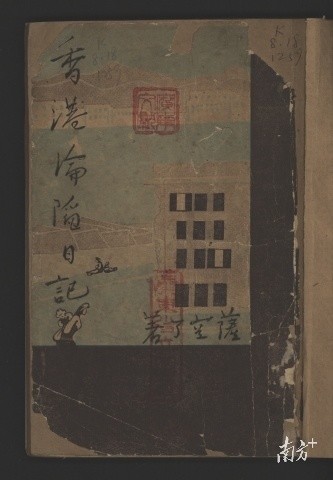 香港淪陷日記
薩空了著
南方+